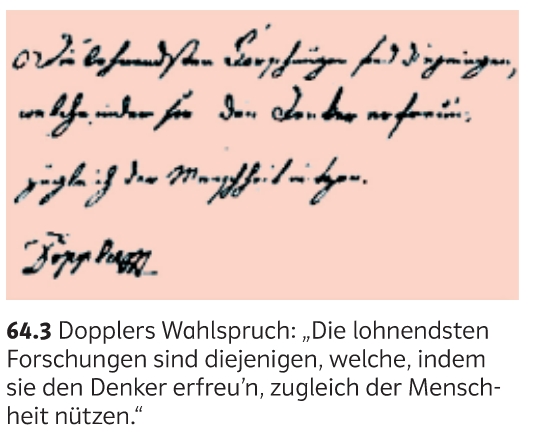 Die lohnendsten Forschungen sind diejenigen,
welche, indem sie den Denker erfreu'n,
zugleich der Menschheit nützen.
Doppler
64.3 Dopplers Wahlspruch: „Die lohnendsten
Forschungen sind diejenigen, welche, indem
sie den Denker erfreu’n, zugleich der Mensch-
heit nützen.“